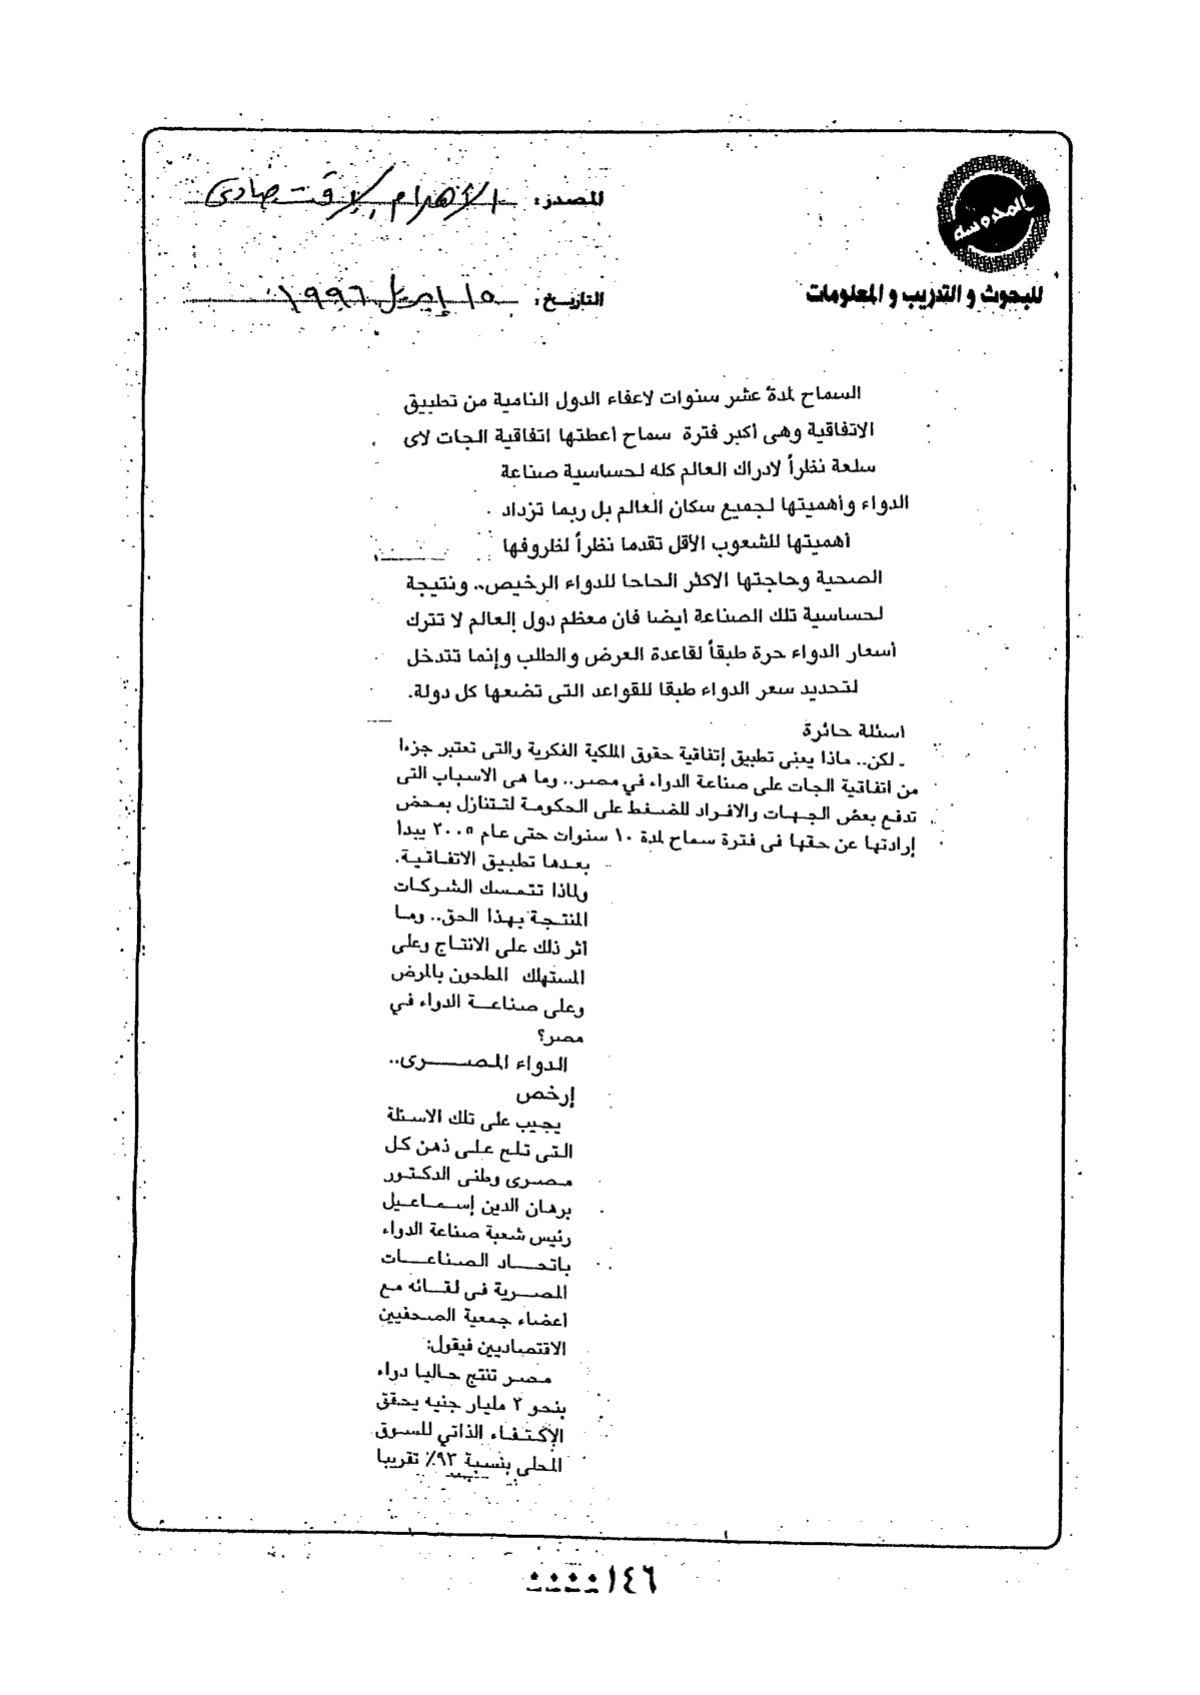 المحروسة
للبحوث و التدريب و المعلومات
المصدر: الأهرام الاقتصادى
التاريخ: ١٥ إبريل ١٩٩٦
السماح لمدة عشر سنوات لاعفاء الدول النامية من تطبيق
الاتفاقية وهى أكبر فترة سماح أعطتها اتفاقية الجات لاى
سلعة نظراً لادراك العالم كله لحساسية صناعة
الدواء وأهميتها لجميع سكان العالم بل ربما تزداد
أهميتها للشعوب الأقل تقدما نظراً لظروفها
الصحية وحاجتها الاكثر الحاحا للدواء الرخيص.. ونتيجة
لحساسية تلك الصناعة أيضا فان معظم دول العالم لا تترك
أسعار الدواء حرة طبقاً لقاعدة العرض والطلب وإنما تتدخل
لتحديد سعر الدواء طبقا للقواعد التى تضعها كل دولة.
اسئلة حائرة
ـ لكن.. ماذا يعنى تطبيق إتفاقية حقوق الملكية الفكرية والتى تعتبر جزءا
من اتفاقية الجات على صناعة الدواء في مصر.. وما هى الاسباب التى
تدفع بعض الجهات والافراد للضغط على الحكومة لتتنازل بمحض
إرادتها عن حقها فى فترة سماح لمدة ١٠ سنوات حتى عام ٢٠٠٥ يبدا
بعدها تطبيق الاتفاقية.
ولماذا تتمسك الشركات
المنتجة بهذا الحق.. وما
اثر ذلك على الانتاج وعلى
المستهلك المطحون بالمرض
وعلى صناعة الدواء في
مصر؟
الدواء المصرى..
إرخص
يجيب على تلك الاسئلة
التى تلح على ذهن كل
مصرى وطنى الدكتور
برهان الدين إسماعيل
رئيس شعبة صناعة الدواء
باتحاد الصناعات
المصرية فى لقائه مع
أعضاء جمعية الصحفيين
الاقتصاديين فيقول:
مصر تنتج حاليا دواء
بنحو ٣ مليار جنيه يحقق
الإكتفاء الذاتي للسوق
المحلى بنسبة ٩٣٪ تقريبا
١٤٦